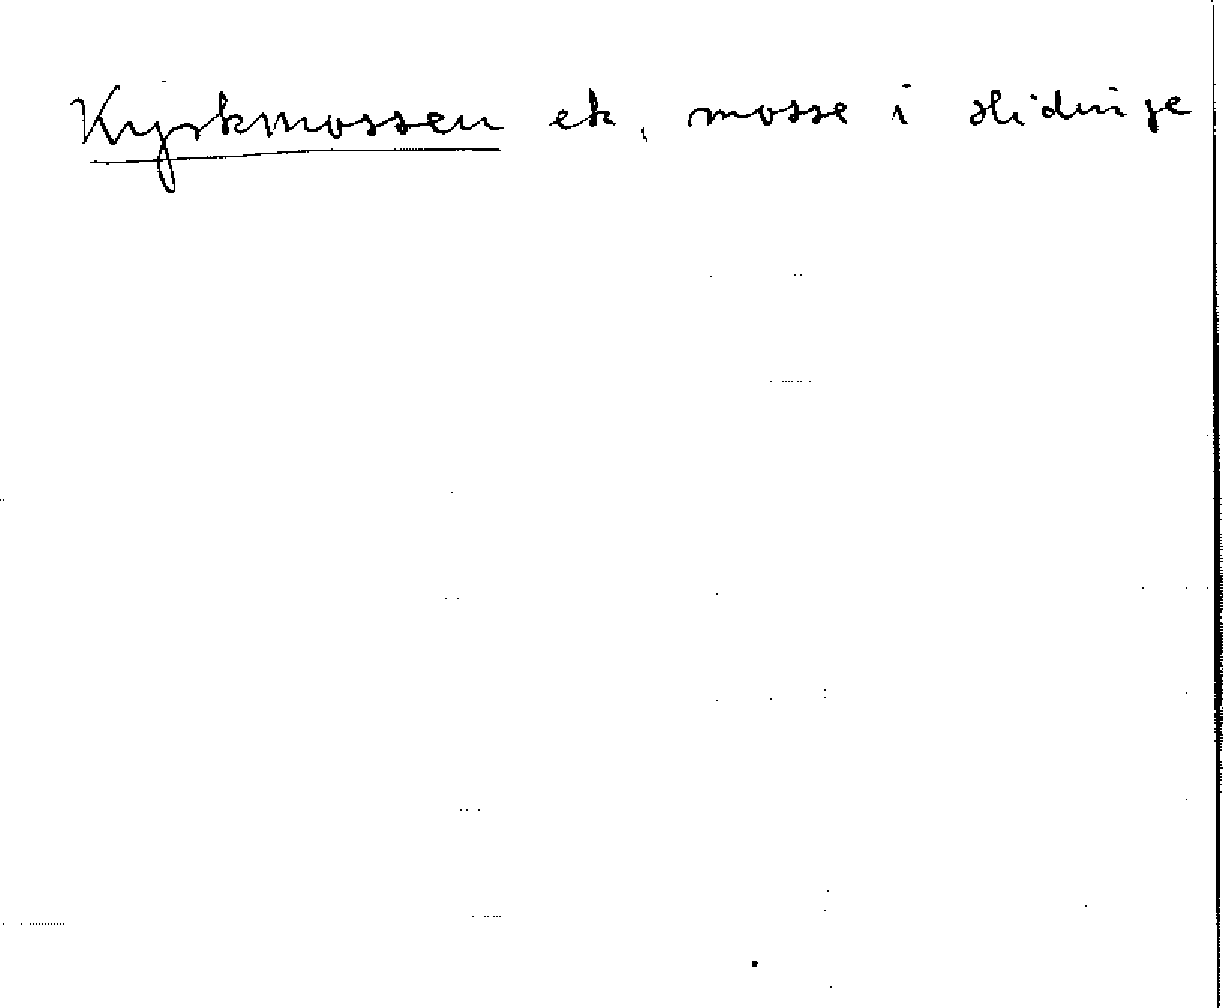 Kyrkmossen ek, mosse i slidinge